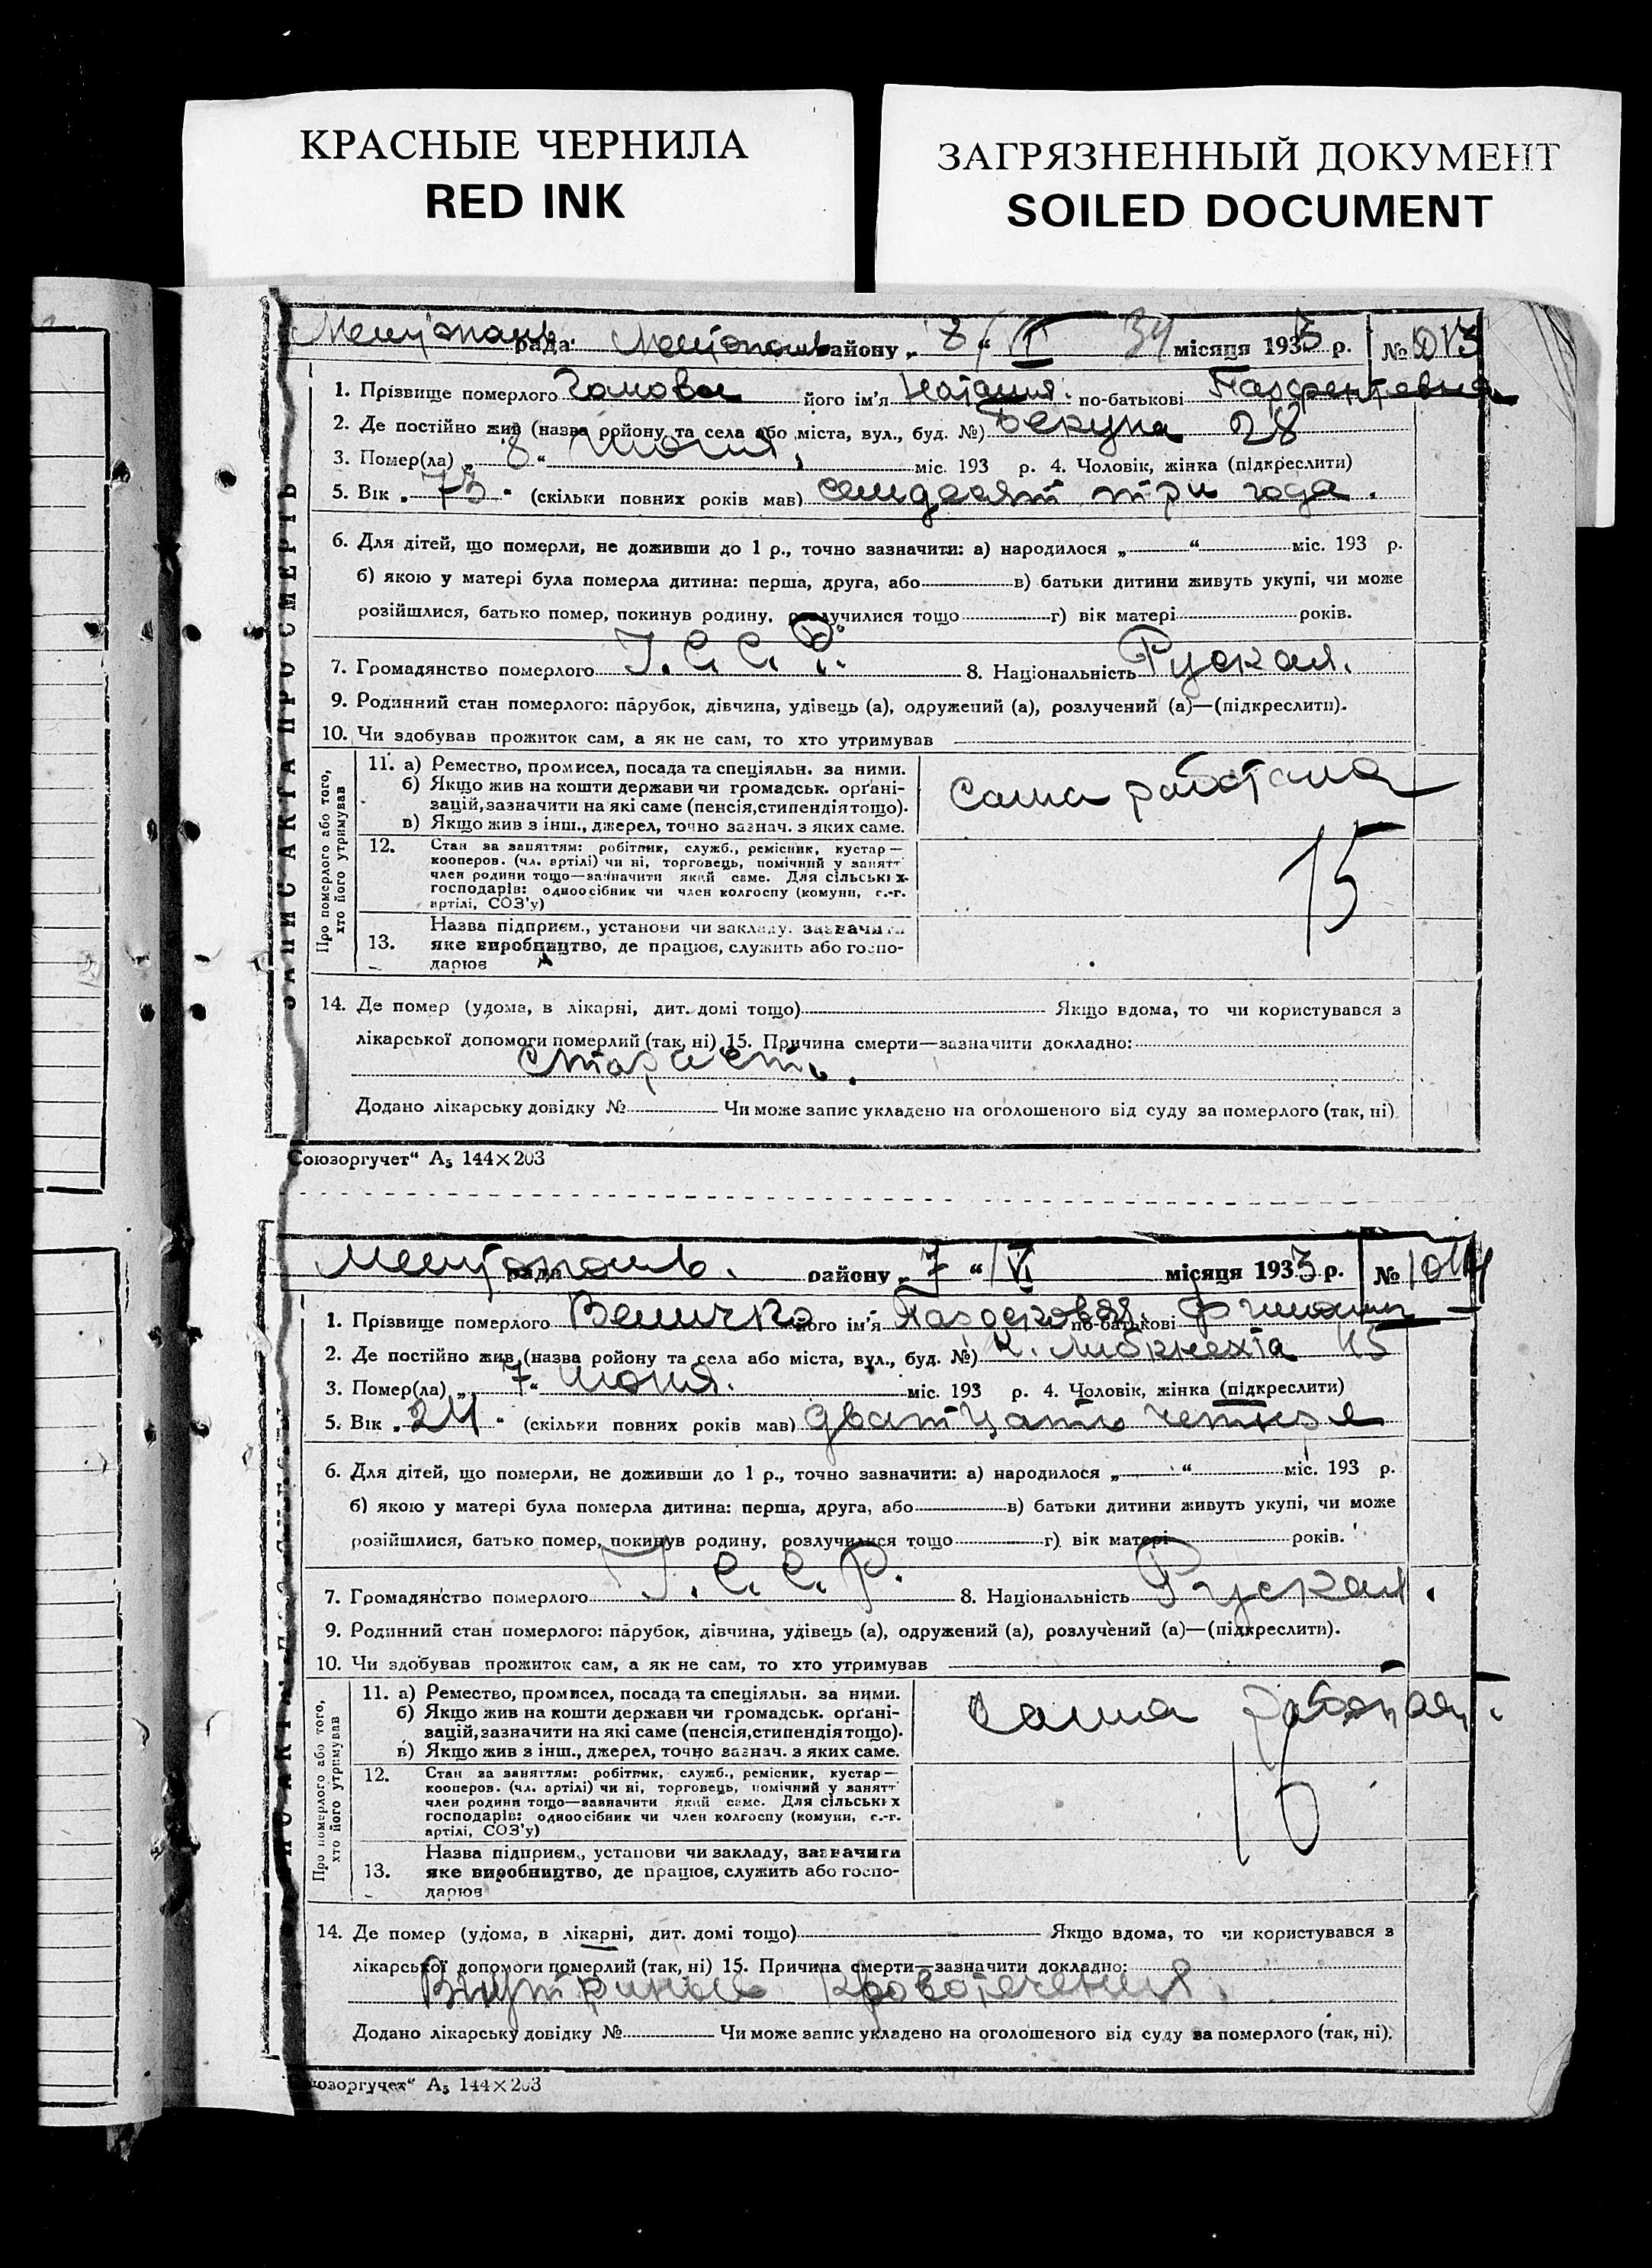 КРАСНЫЕ ЧЕРНИЛА
RED INK
ЗАГРЯЗНЕННЫЙ ДОКУМЕНТ
SOILED DOCUMENT
ЗАПИС АКТА ПРО СМЕРТЬ
рада району „ 8 “ VI місяця 1933 р. №
1. Прізвище померлого його ім'я Наталия по-батькові Парфентевна
2. Де постійно жив (назва ройону та села або міста, вул., буд. №) 28
3. Помер(ла) „ 8 “ июня міс. 193 р. 4. Чоловік, жінка (підкреслити)
5. Вік „ 73 “ (скільки повних років мав) семдесят три года.
6. Для дітей, що померли, не доживши до 1 р., точно зазначити: а) народилося „ “ міс. 193 р.
б) якою у матері була померла дитина: перша, друга, або в) батьки дитини живуть укупі, чи може
розійшлися, батько помер, покинув родину, розлучилися тощо г) вік матері років.
7. Громадянство померлого У.С.С.Р. 8. Національність Руская.
9. Родинний стан померлого: парубок, дівчина, удівець (а), одружений (а), розлучений (а)—(підкреслити).
10. Чи здобував прожиток сам, а як не сам, то хто утримував
Про померлого або того, хто його утримував
11. а) Ремество, промисел, посада та спеціяльн. за ними.
б) Якщо жив на кошти держави чи громадськ. орґані-
зацій, зазначити на які саме (пенсія, стипендія тощо).
в) Якщо жив з інш., джерел, точно зазнач. з яких саме.
Сама работала
12. Стан за заняттям: робітник, служб., ремісник, кустар—
кооперов. (чл. артілі) чи ні, торговець, помічний у занятт
член родини тощо—зазначити який саме. Для сільських
господарів: одноосібник чи член колгоспу (комуни, с.-г.
артілі, СОЗ'у)
15
13. Назва підприєм., установи чи закладу, зазначити
яке виробництво, де працює, служить або госпо-
дарює
14. Де помер (удома, в лікарні, дит. домі тощо) Якщо вдома, то чи користувався з
лікарської допомоги померлий (так, ні) 15. Причина смерти—зазначити докладно:
Старость.
Додано лікарську довідку № Чи може запис укладено на оголошеного від суду за померлого (так, ні)
Союзоргучет“ А5 144×203
рада району „ 7 “ VI місяця 1933 р. №
1. Прізвище померлого Величко його ім'я по-батькові
2. Де постійно жив (назва ройону та села або міста, вул., буд. №) К. Либкнехта 45
3. Помер(ла) „ 7 “ июня. міс. 193 р. 4. Чоловік, жінка (підкреслити)
5. Вік „ 24 “ (скільки повних років мав)
6. Для дітей, що померли, не доживши до 1 р., точно зазначити: а) народилося „ “ міс. 193 р.
б) якою у матері була померла дитина: перша, друга, або в) батьки дитини живуть укупі, чи може
розійшлися, батько помер, покинув родину, розлучилися тощо г) вік матері років.
7. Громадянство померлого У.С.С.Р. 8. Національність Руская.
9. Родинний стан померлого: парубок, дівчина, удівець (а), одружений (а), розлучений (а)—(підкреслити).
10. Чи здобував прожиток сам, а як не сам, то хто утримував
Про померлого або того, хто його утримував
11. а) Ремество, промисел, посада та спеціяльн. за ними.
б) Якщо жив на кошти держави чи громадськ. орґані-
зацій, зазначити на які саме (пенсія, стипендія тощо).
в) Якщо жив з інш., джерел, точно зазнач. з яких саме.
Сама
12. Стан за заняттям: робітник, служб., ремісник, кустар—
кооперов. (чл. артілі) чи ні, торговець, помічний у занятт
член родини тощо—зазначити який саме. Для сільських
господарів: одноосібник чи член колгоспу (комуни, с.-г.
артілі, СОЗ'у)
13. Назва підприєм., установи чи закладу, зазначити
яке виробництво, де працює, служить або госпо-
дарює
14. Де помер (удома, в лікарні, дит. домі тощо) Якщо вдома, то чи користувався з
лікарської допомоги померлий (так, ні) 15. Причина смерти—зазначити докладно:
кровотечения.
Додано лікарську довідку № Чи може запис укладено на оголошеного від суду за померлого (так, ні).
оюзоргучет“ А5 144×203